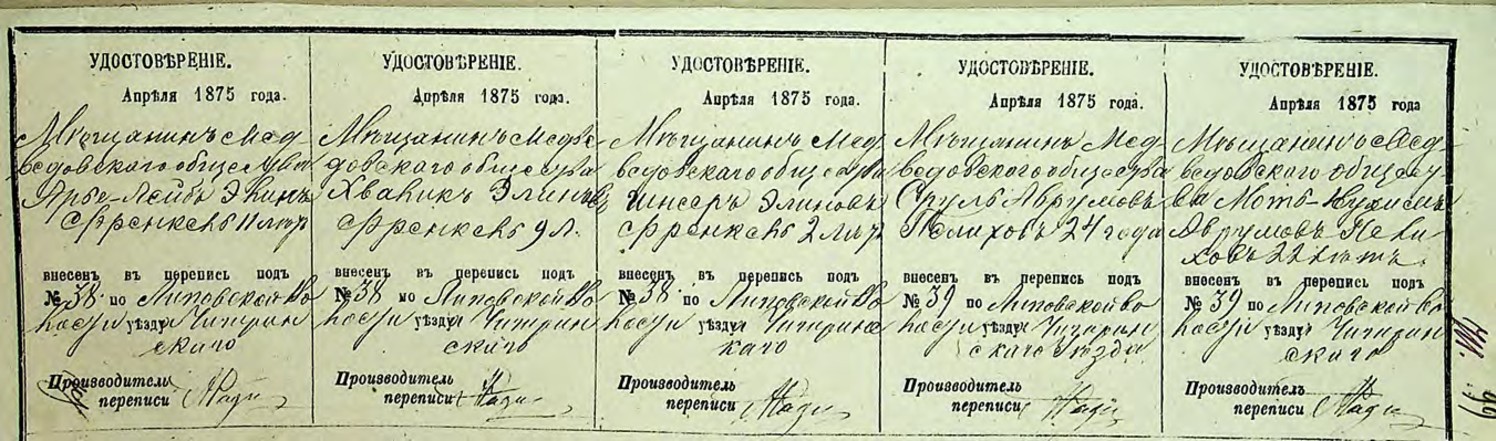 УДОСТОВѢРЕНІЕ.
Апрѣля 1875 года.
Мѣщанинъ Мед
ведовскаго обществ
Лейбъ
Френкель 11 лѣт
внесенъ въ перепись подъ
№ 38 по Липовской во
лости уѣзду Чигирин
скаго
Производитель
переписи
УДОСТОВѢРЕНІЕ.
Апрѣля 1875 года.
Мѣщанинъ Медве
довскаго общества
Хваник Элиновъ
Френкель 9 л.
внесенъ въ перепись подъ
№ 38 по Липовской во
лости уѣзду Чигирин
скаго
Производитель
переписи
УДОСТОВѢРЕНІЕ.
Апрѣля 1875 года.
Мѣщанинъ Мед
ведовскаго общества
Элиновъ
Френкель 2 лѣт
внесенъ въ перепись подъ
№ 38 по Липовской во
лости уѣзду Чигиринс
каго
Производитель
переписи
УДОСТОВѢРЕНІЕ.
Апрѣля 1875 года.
Мѣщанинъ Мед
ведовскаго общества
Сруль Аврумовъ
Пелиховъ 24 года
внесенъ въ перепись подъ
№ 39 по Липовской во
лости уѣзду Чигирин
скаго уѣзда
Производитель
переписи
УДОСТОВѢРЕНІЕ.
Апрѣля 1875 года
Мѣщанинъ Мед
ведовскаго общест
ва Мотъ-
Аврумовъ Пели
ховъ 22 лѣтъ
внесенъ въ перепись подъ
№ 39 по Липовской во
лости уѣзду Чигирин
скаго
Производитель
переписи